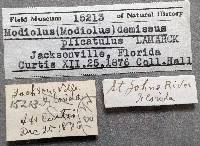 Field Museum 15213 of Natural History
Modiolus(Modiolus)demissus
plicatulus LAMARCK
Jacksonville, Florida
Curtis XII.25,1876 Coll.Hall
Jacksonville
15213 Florida
Dec 25 1876
St Johns River
Florida